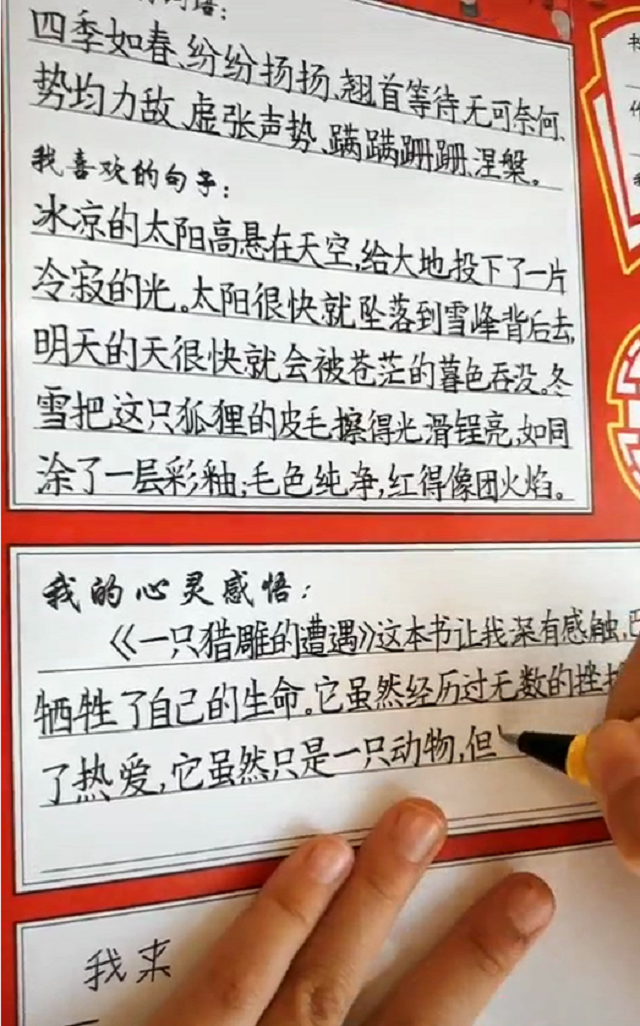 四季如春、纷纷扬扬、翘首等待、无可奈何、
势均力敌、虚张声势、蹒蹒跚跚、涅槃。
我喜欢的句子：
冰凉的太阳高悬在天空,给大地投下了一片
冷寂的光。太阳很快就坠落到雪峰背后去,
明天的天很快就会被苍茫的暮色吞没。冬
雪把这只狐狸的皮毛擦得光滑锃亮,如同
涂了一层彩釉;毛色纯净,红得像团火焰。
我的心灵感悟：
《一只猎雕的遭遇》这本书让我深有感触,
牺牲了自己的生命。它虽然经历过无数的挫
了热爱,它虽然只是一只动物,但
我来